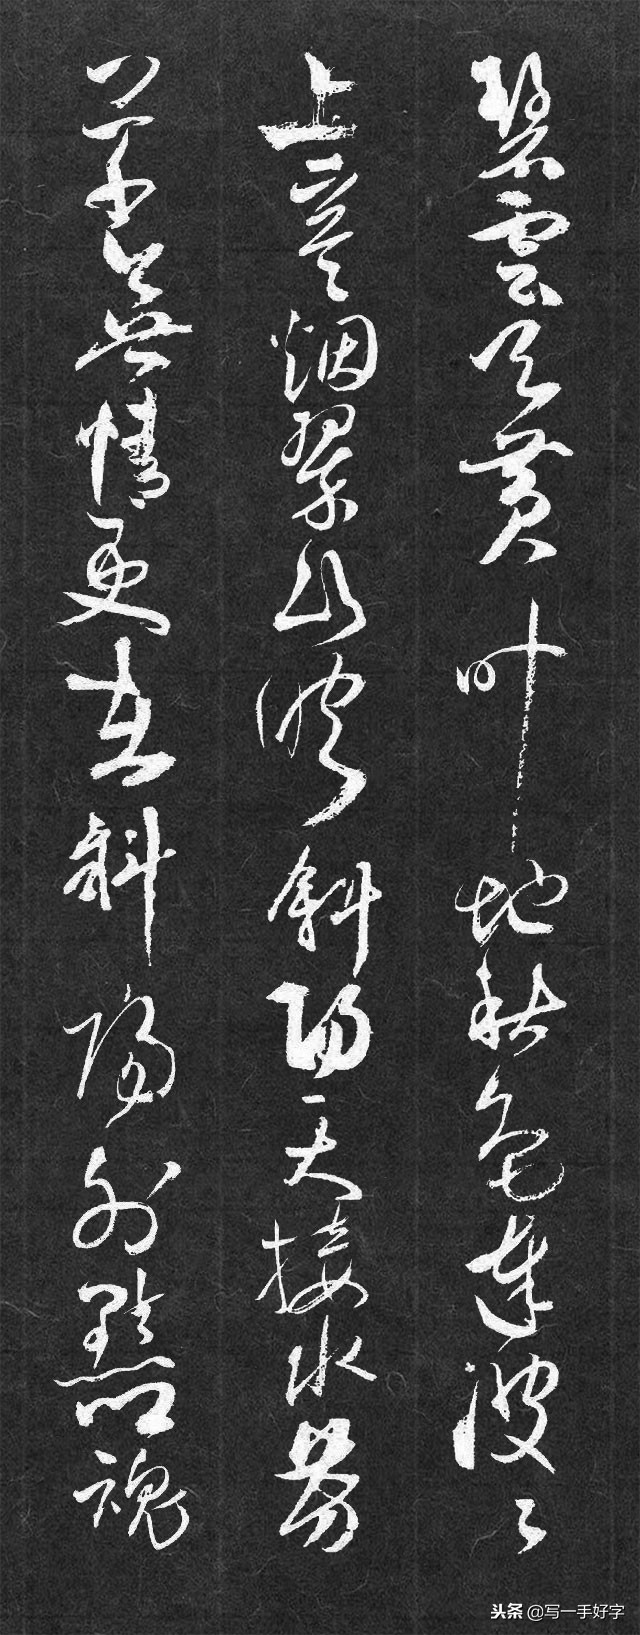 碧雲天黄叶地秋色連波〻
上寒烟翠山映斜陽天接水芳
草無情更在斜陽外黯鄉魂
头条 @写一手好字